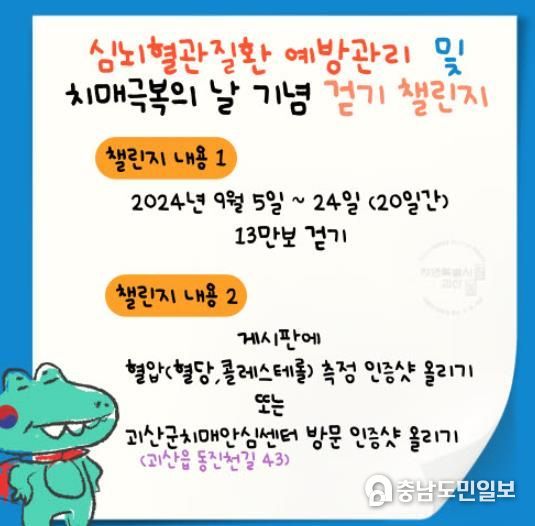 심뇌혈관질환 예방관리 및
치매극복의 날 기념 걷기 챌린지
챌린지 내용 1
2024년 9월 5일 ~ 24일 (20일간)
13만보 걷기
자연특별시
괴산
챌린지 내용 2
게시판에
혈압(혈당,콜레스테롤) 측정 인증샷 올리기
또는
괴산군치매안심센터 방문 인증샷 올리기
(괴산읍 동진천길 43)
충남도민일보